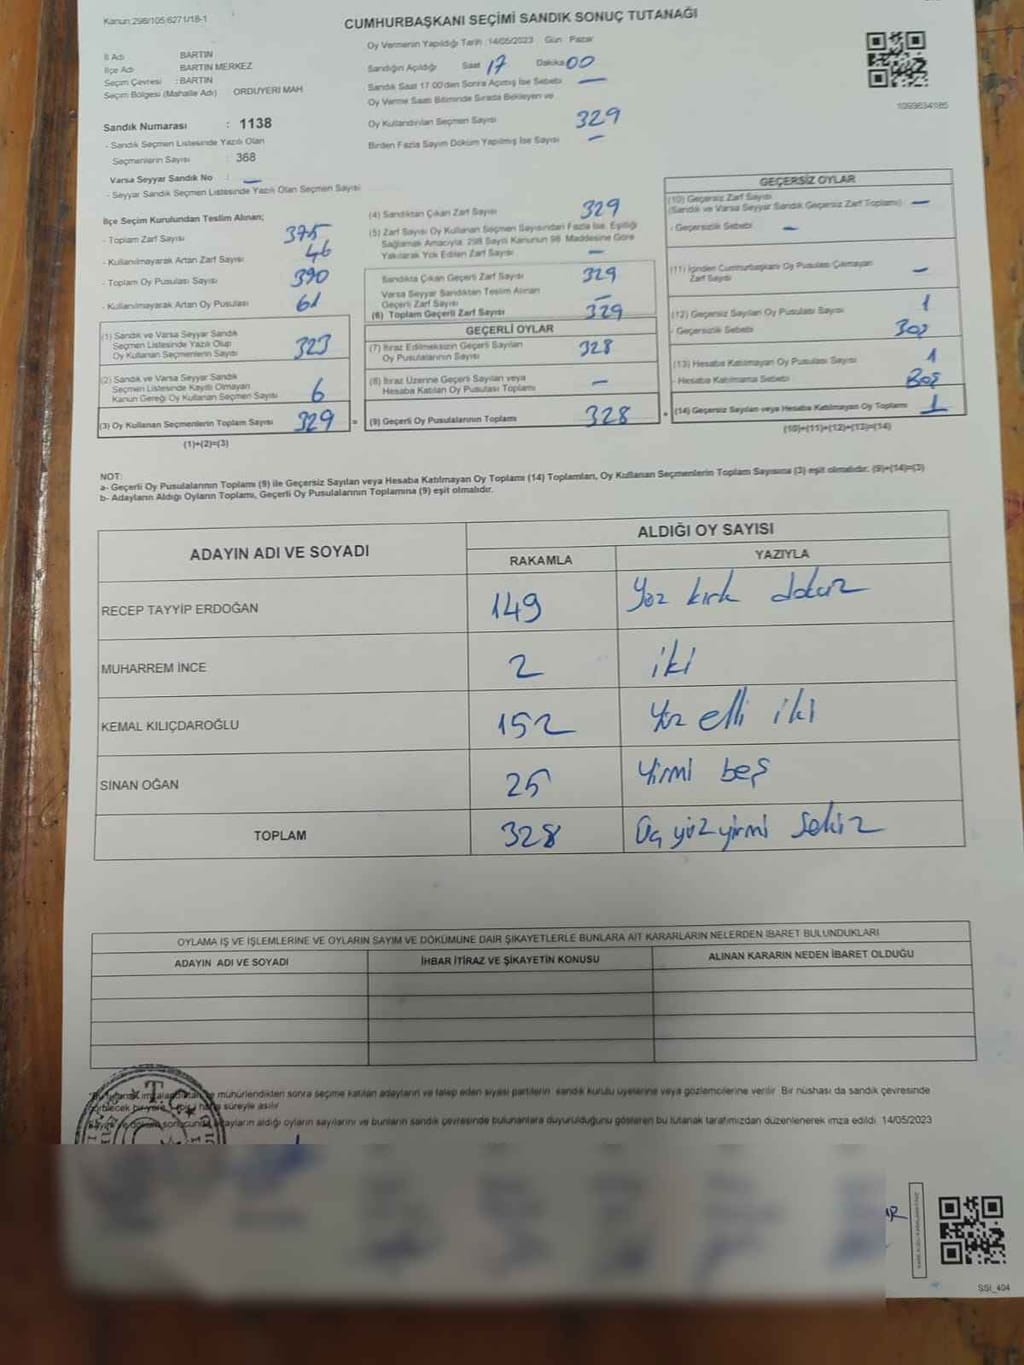 Kanun:298/105:6271/18-1
CUMHURBAŞKANI SEÇİMİ SANDIK SONUÇ TUTANAĞI
İl Adı BARTIN
İlçe Adı BARTIN MERKEZ
Seçim Çevresi : BARTIN
Seçim Bölgesi (Mahalle Adı) ORDUYERİ MAH
Sandık Numarası : 1138
- Sandık Seçmen Listesinde Yazılı Olan
Seçmenlerin Sayısı : 368
Varsa Seyyar Sandık No : —
- Seyyar Sandık Seçmen Listesinde Yazılı Olan Seçmen Sayısı
Oy Vermenin Yapıldığı Tarih :14/05/2023 Gün : Pazar
Sandığın Açıldığı Saat 17 Dakika 00
Sandık Saat 17:00'den Sonra Açılmış İse Sebebi —
Oy Verme Saati Bitiminde Sırada Bekleyen ve
Oy Kullandırılan Seçmen Sayısı 329
Birden Fazla Sayım Döküm Yapılmış İse Sayısı —
1099634185
İlçe Seçim Kurulundan Teslim Alınan;
- Toplam Zarf Sayısı 375
- Kullanılmayarak Artan Zarf Sayısı 46
- Toplam Oy Pusulası Sayısı 390
- Kullanılmayarak Artan Oy Pusulası 61
(1) Sandık ve Varsa Seyyar Sandık
Seçmen Listesinde Yazılı Olup
Oy Kullanan Seçmenlerin Sayısı 323
(2) Sandık ve Varsa Seyyar Sandık
Seçmen Listesinde Kayıtlı Olmayan
Kanun Gereği Oy Kullanan Seçmen Sayısı 6
(3) Oy Kullanan Seçmenlerin Toplam Sayısı 329
(1)+(2)=(3)
(4) Sandıktan Çıkan Zarf Sayısı 329
(5) Zarf Sayısı Oy Kullanan Seçmen Sayısından Fazla İse, Eşitliği
Sağlamak Amacıyla, 298 Sayılı Kanunun 98. Maddesine Göre
Yakılarak Yok Edilen Zarf Sayısı —
Sandıkta Çıkan Geçerli Zarf Sayısı 329
Varsa Seyyar Sandıktan Teslim Alınan
Geçerli Zarf Sayısı —
(6) Toplam Geçerli Zarf Sayısı 329
GEÇERLİ OYLAR
(7) İtiraz Edilmeksizin Geçerli Sayılan
Oy Pusulalarının Sayısı 328
(8) İtiraz Üzerine Geçerli Sayılan veya
Hesaba Katılan Oy Pusulası Toplamı —
= (9) Geçerli Oy Pusulalarının Toplamı 328 +
GEÇERSİZ OYLAR
(10) Geçersiz Zarf Sayısı
(Sandık ve Varsa Seyyar Sandık Geçersiz Zarf Toplamı) —
- Geçersizlik Sebebi —
(11) İçinden Cumhurbaşkanı Oy Pusulası Çıkmayan
Zarf Sayısı —
(12) Geçersiz Sayılan Oy Pusulası Sayısı 1
- Geçersizlik Sebebi Boş
(13) Hesaba Katılmayan Oy Pusulası Sayısı 1
- Hesaba Katılmama Sebebi Boş
(14) Geçersiz Sayılan veya Hesaba Katılmayan Oy Toplamı 1
(10)+(11)+(12)+(13)=(14)
NOT:
a- Geçerli Oy Pusulalarının Toplamı (9) ile Geçersiz Sayılan veya Hesaba Katılmayan Oy Toplamı (14) Toplamları, Oy Kullanan Seçmenlerin Toplam Sayısına (3) eşit olmalıdır. (9)+(14)=(3)
b- Adayların Aldığı Oyların Toplamı, Geçerli Oy Pusulalarının Toplamına (9) eşit olmalıdır.
ADAYIN ADI VE SOYADI ALDIĞI OY SAYISI
RAKAMLA YAZIYLA
RECEP TAYYİP ERDOĞAN 149 Yüz kırk dokuz
MUHARREM İNCE 2 iki
KEMAL KILIÇDAROĞLU 152 Yüz elli iki
SİNAN OĞAN 25 Yirmi beş
TOPLAM 328 Üç yüz yirmi sekiz
OYLAMA İŞ VE İŞLEMLERİNE VE OYLARIN SAYIM VE DÖKÜMÜNE DAİR ŞİKAYETLERLE BUNLARA AİT KARARLARIN NELERDEN İBARET BULUNDUKLARI
ADAYIN ADI VE SOYADI İHBAR İTİRAZ VE ŞİKAYETİN KONUSU ALINAN KARARIN NEDEN İBARET OLDUĞU
mühürlendikten sonra seçime katılan adayların ve talep eden siyasi partilerin sandık kurulu üyelerine veya gözlemcilerine verilir. Bir nüshası da sandık çevresinde
süreyle asılır
adayların aldığı oyların sayılarını ve bunların sandık çevresinde bulunanlara duyurulduğunu gösteren bu tutanak tarafımızdan düzenlenerek imza edildi. 14/05/2023
T.C.
SSI_404